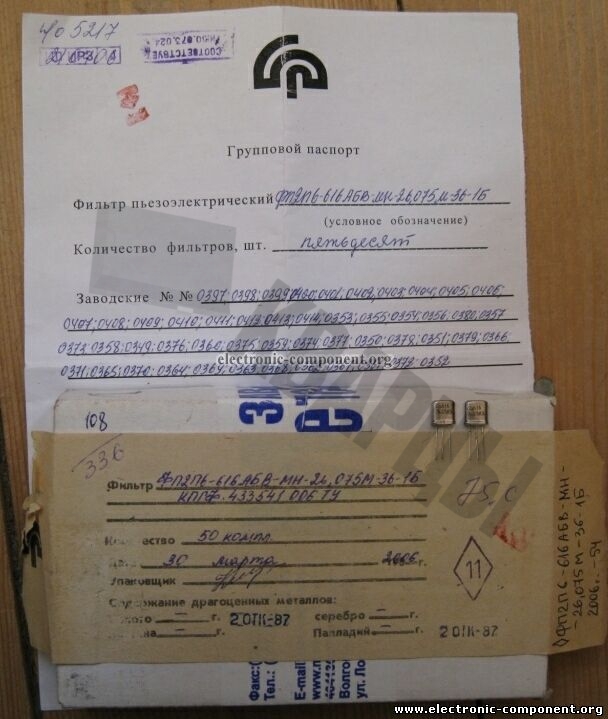 40 5217
СООТВЕТСТВУЕТ
Групповой паспорт
Фильтр пьезоэлектрический ФП2П6-616АБВ-МН-26,075М-36-1Б
(условное обозначение)
Количество фильтров, шт. пятьдесят
Заводские №№ 0397; 0398; 0399; 0400; 0401; 0402; 0403; 0404; 0405; 0406;
0407; 0408; 0409; 0410; 0411; 0412; 0413; 0414; 0353; 0355; 0354; 0356; 0380; 0357
0373; 0358; 0349; 0376; 0360; 0375; 0359; 0374; 0377; 0350; 0378; 0351; 0379; 0366;
0371; 0365; 0370; 0364; 0369; 0363; 0368; 0352
electronic-component.org
108
336
Фильтр ФП2П6-616АБВ-МН-26,075М-36-1Б
КПГФ.433541.006 ТУ
75.0
Количество 50 компл.
Дата 30 марта 2006 г.
Упаковщик
11
Содержание драгоценных металлов:
Золото — г. серебро — г.
2 ОТК-87
Палладий — г. 2 ОТК-87
ФП2П6-616АБВ-МН-
-26,075М-36-1Б
2006г. - 54
Факс:
Тел.: (
E-mail
www.
Волго
ул. Ло
www.electronic-component.org